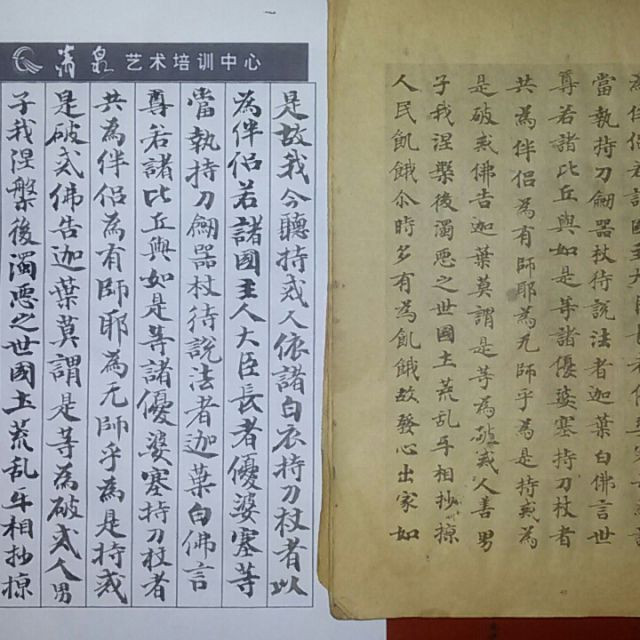 清泉 艺术培训中心
是故我今聽持戒人依諸白衣持刀杖者以
為伴侶若諸國王人大臣長者優婆塞等
當執持刀劔器杖待說法者迦葉白佛言
尊若諸比丘與如是等諸優婆塞持刀杖者
共為伴侶為有師耶為无師乎為是持戒
是破戒佛告迦葉莫謂是等為破戒人男
子我涅槃後濁惡之世國土荒乱㸦相抄掠
當執持刀劔器杖待說法者迦葉白佛言世
尊若諸比丘與如是等諸優婆塞持刀杖者
共為伴侶為有師耶為无師乎為是持戒為
是破戒佛告迦葉莫謂是等為破戒人善男
子我涅槃後濁惡之世國土荒乱㸦相抄掠
人民飢餓尒時多有為飢餓故發心出家如